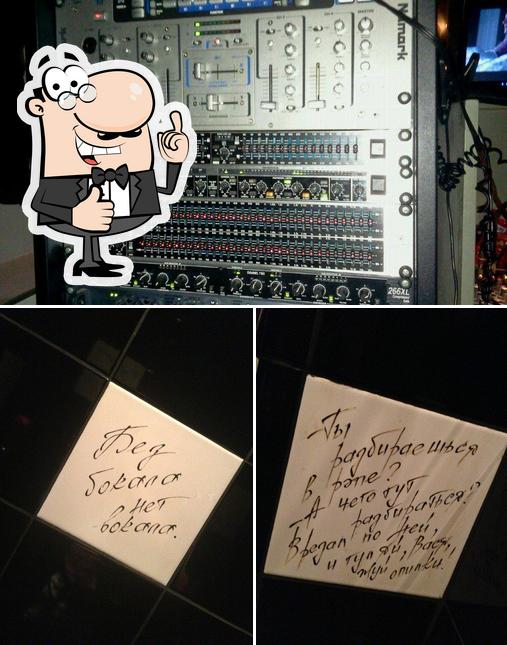 Numark
266XL
Без
бокала
нет
вокала.
-Ты
разбираешься
в рэпе?
-А чего тут
разбираться?
Врезал по ней,
и гуляй, Вася,
жуй опилки!